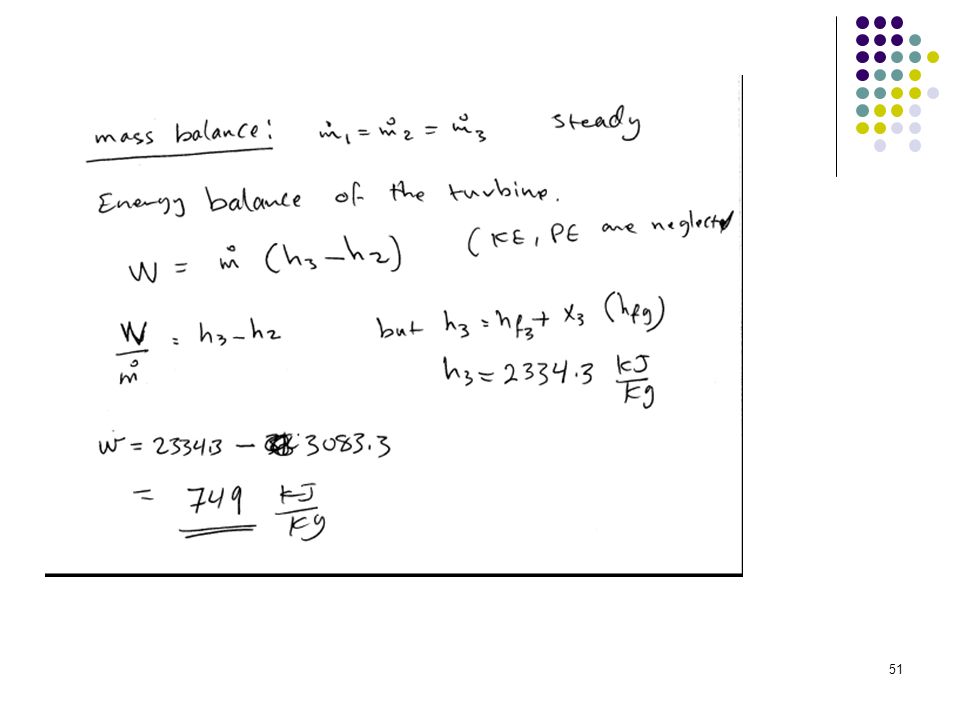 mass balance: ṁ₁ = ṁ₂ = ṁ₃ steady
Energy balance of the turbine.
W = ṁ (h₃ – h₂) (KE, PE are neglected
W/ṁ = h₃ – h₂ but h₃ = hf₃ + x₃ (hfg)
h₃ = 2334.3 kJ/kg
w = 2334.3 – 3083.3
= 749 kJ/kg
51